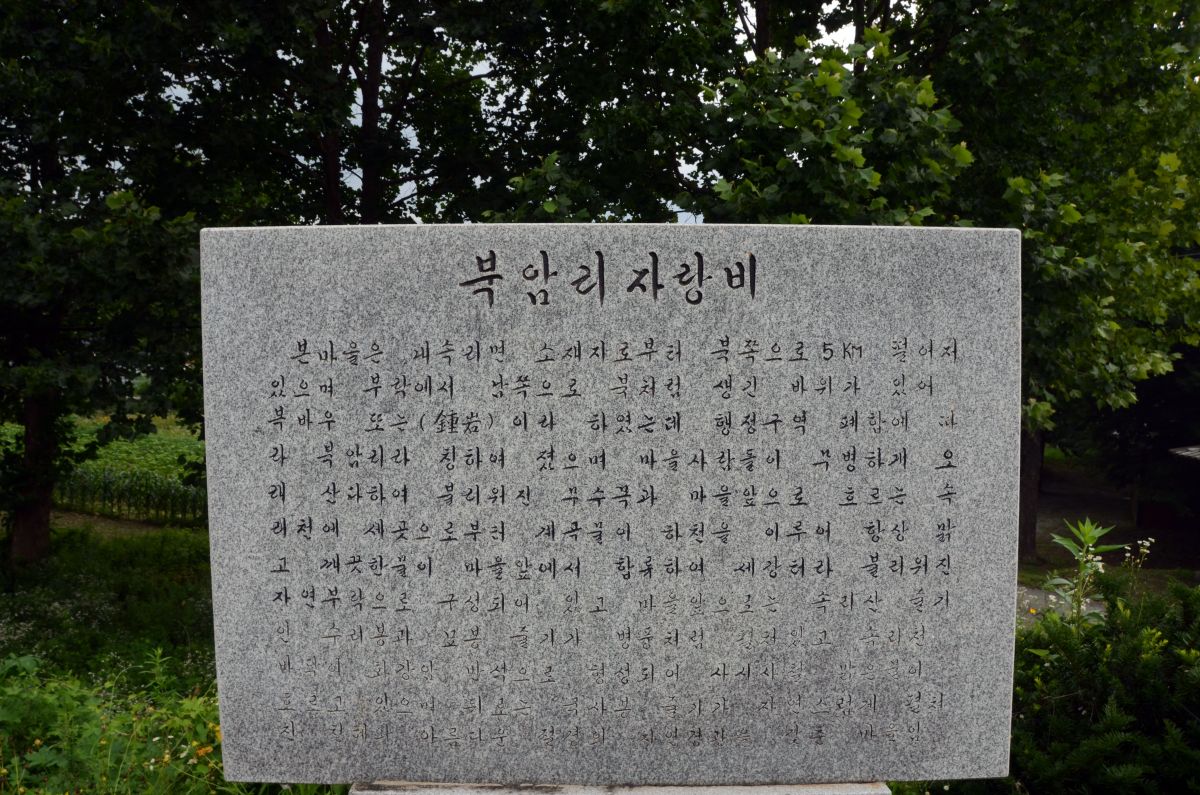 북암리자랑비
본마을은 내속리면 소재지로부터 북쪽으로 5KM 떨어져
있으며 부락에서 남쪽으로 북처럼 생긴 바위가 있어
북바우 또는 (鍾岩) 이라 하였는데 행정구역 폐합에 따
라 북암리라 칭하여 졌으며 마을사람들이 무병하게 오
래 산다하여 불리워진 무수목과 마을앞으로 흐르는 속
리천에 세곳으로부터 계곡물이 하천을 이루어 항상 맑
고 깨끗한물이 마을앞에서 합류하여 세강터라 불리워진
자연부락으로 구성되어 있고 마을앞으로는 속리산 줄기
인 수리봉과 묘봉 줄기가 병풍처럼 펼쳐있고 속리천
바닥이 화강암 반석으로 형성되어 사시사철 맑은물이
흐르고 있으며 뒤로는 국사봉 줄기가 자연스럽게 펼쳐
진 아름다운 절경의 마을임